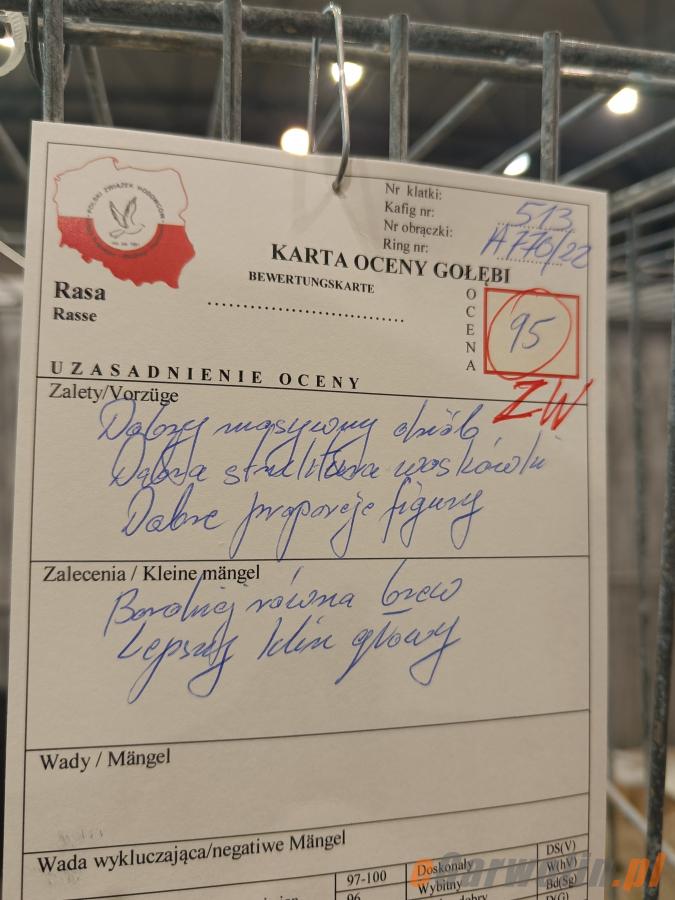 POLSKI ZWIĄZEK HODOWCÓW
Nr klatki:
Kafig nr: 513
Nr obrączki:
Ring nr: A770/22
KARTA OCENY GOŁĘBI
BEWERTUNGSKARTE
Rasa
Rasse
OCENA
95
ZW
UZASADNIENIE OCENY
Zalety/Vorzüge
Dobry masywny dziób
Dobra struktura woskówki
Dobre proporcje figury
Zalecenia / Kleine mängel
Bardziej równa brew
Lepszy klin głowy
Wady / Mängel
Wada wykluczająca/negatiwe Mängel
97-100 Doskonały DS(V)
96 Wybitny W(hV)
dobry Bd(Sg)
D(G)
eGarwolin.pl